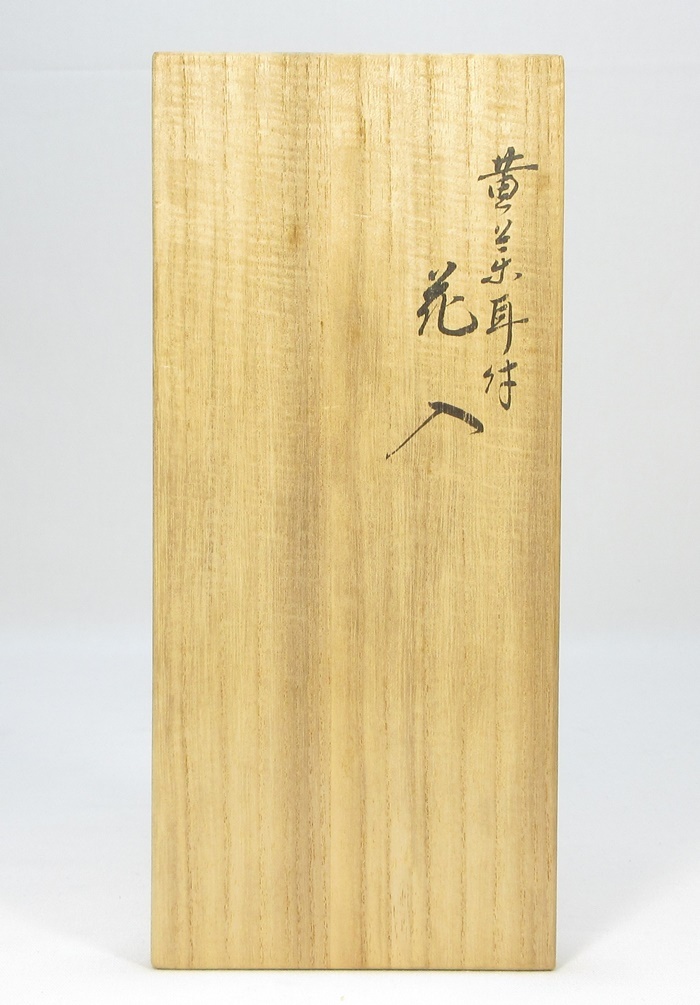 黄薬耳付
花入